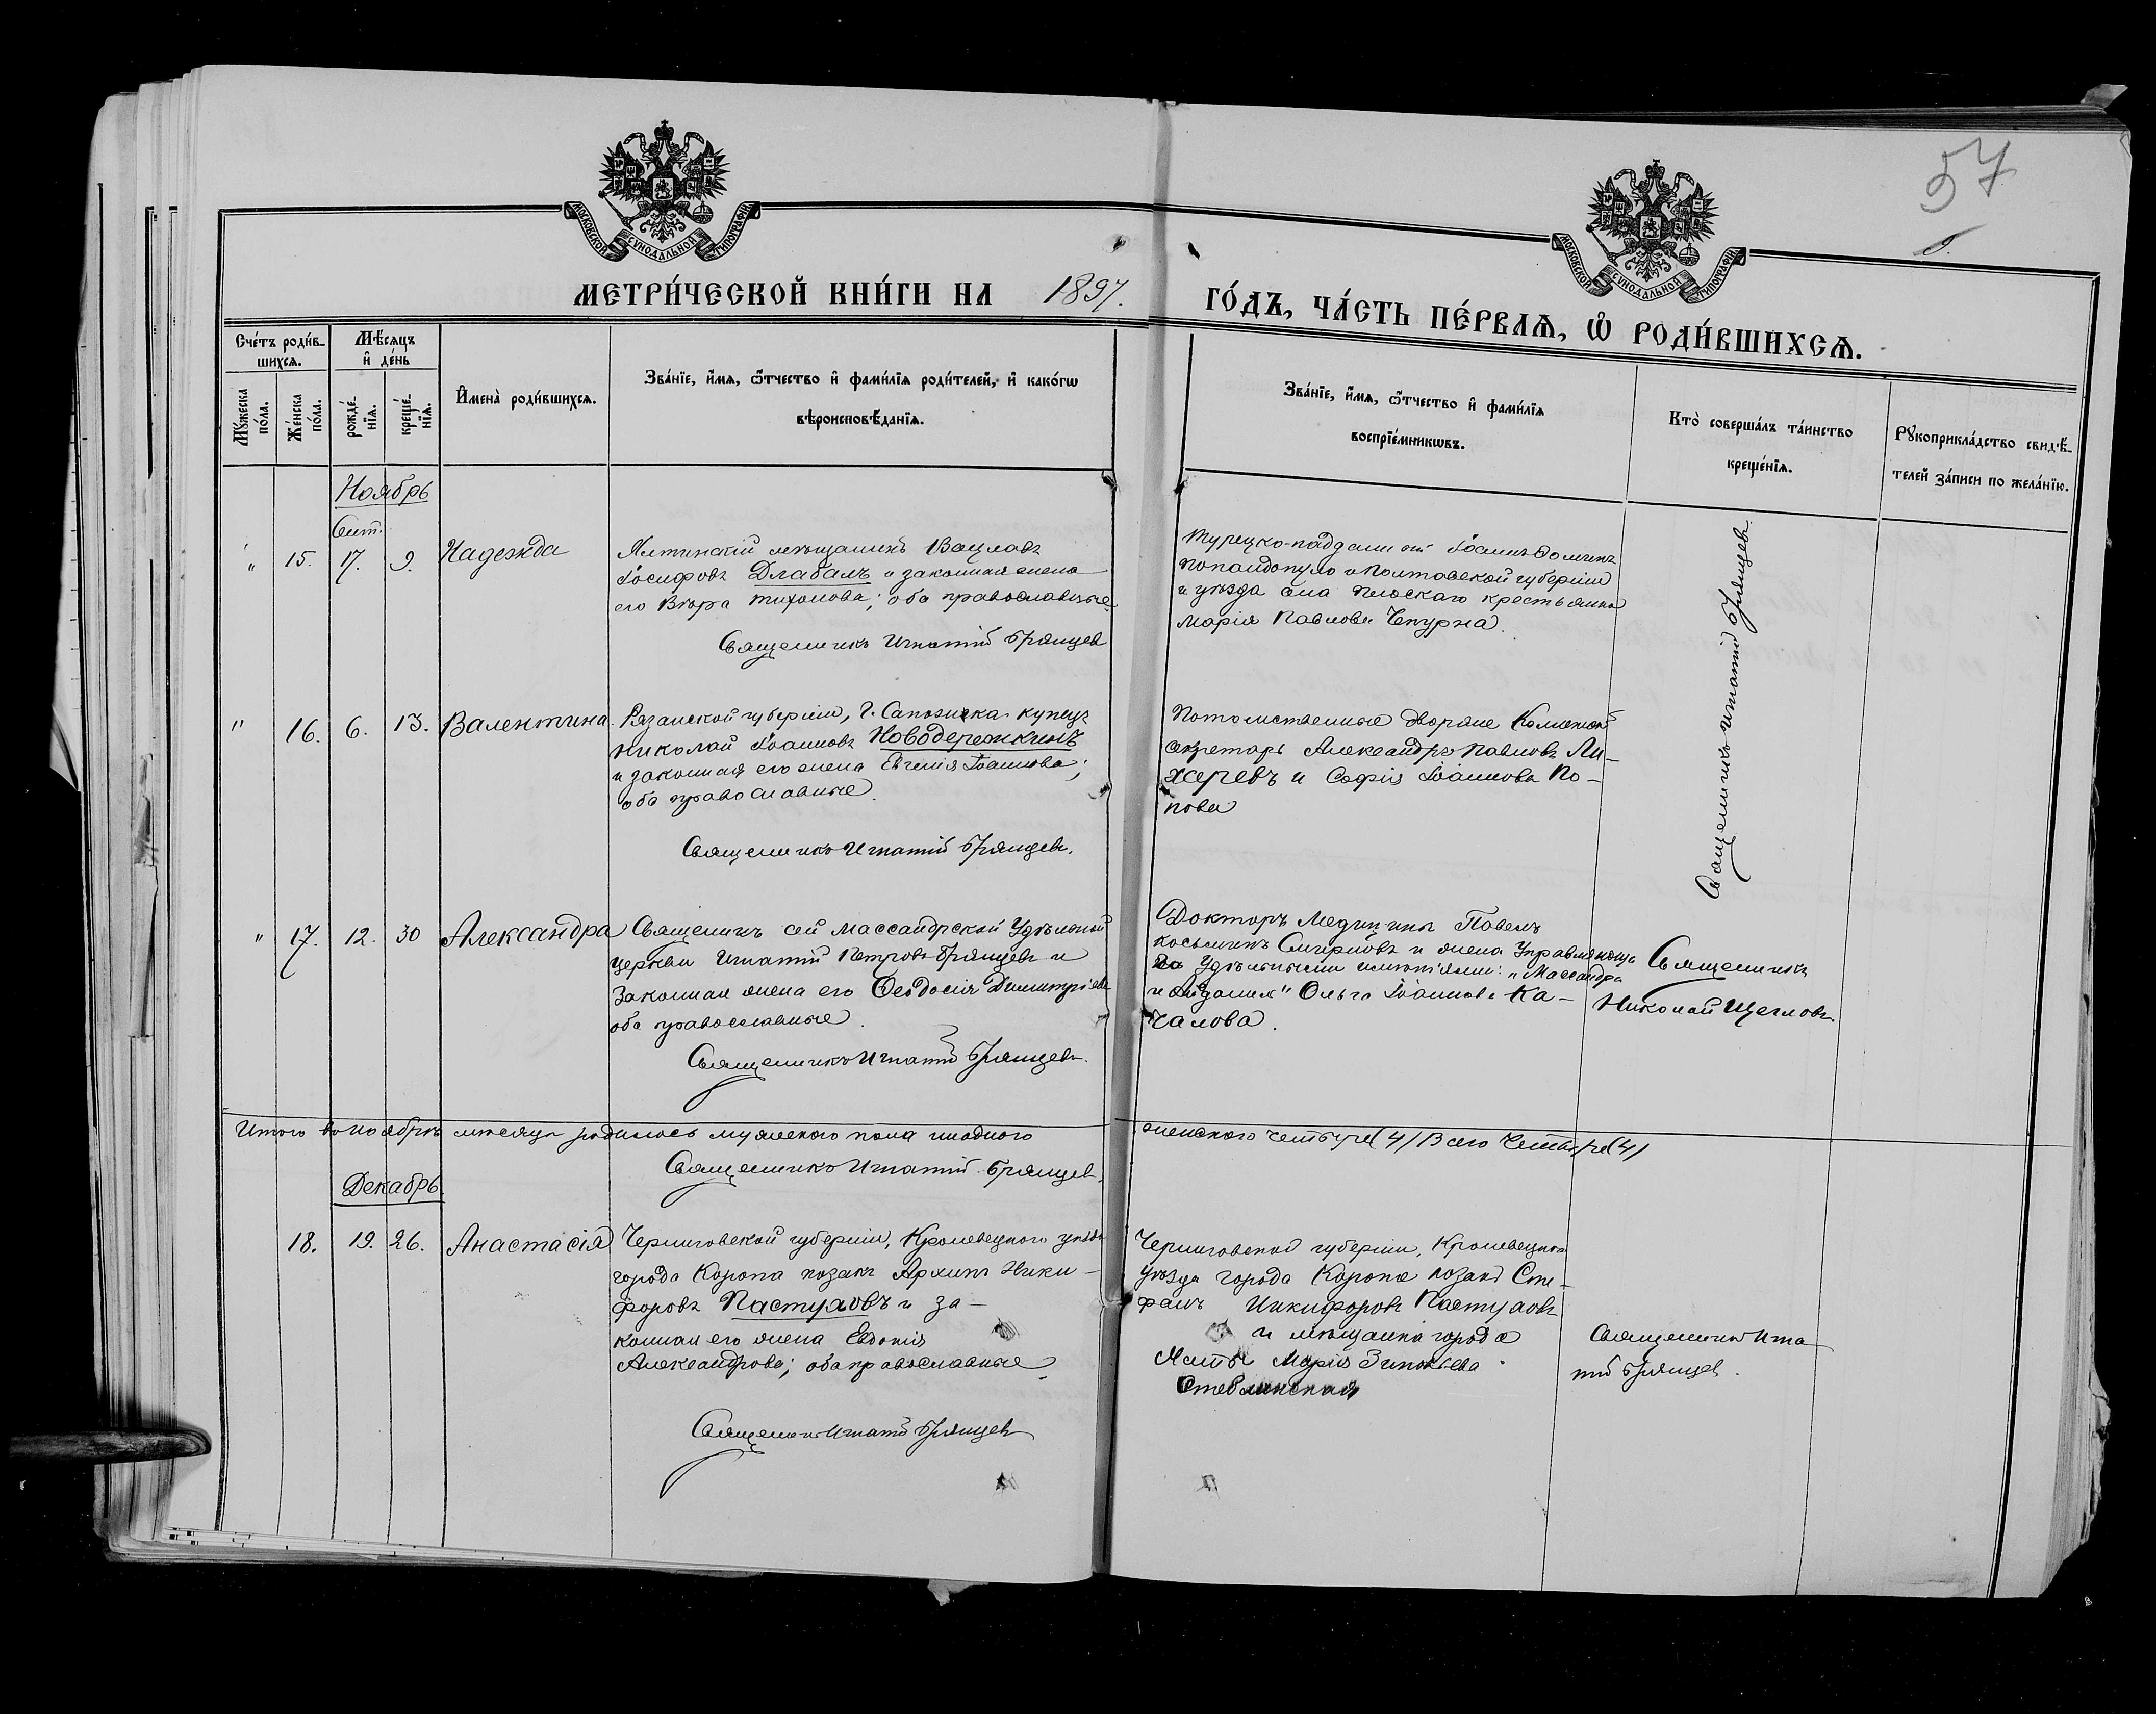 57
МОСКОВСКОЙ СѴНОДАЛЬНОЙ ТИПОГРАФІИ
МОСКОВСКОЙ СѴНОДАЛЬНОЙ ТИПОГРАФІИ
МЕТРИ́ЧЕСКОЙ КНИ́ГИ НА 1897. ГО́ДЪ, ЧА́СТЬ ПЕ́РВАѦ, Ѡ҆ РОДИ́ВШИХСѦ.
Сче́тъ роди́в-
шихсѧ.
Мѣ́сѧцъ
и҆ де́нь
Мꙋ́жеска
по́ла.
Же́нска
по́ла.
рожде́-
нїѧ.
креще́-
нїѧ.
И҆мена̀ роди́вшихсѧ.
Зва́нїе, и҆́мѧ, ѻ҆́тчество и҆ фами́лїѧ роди́телей, и҆ како́гѡ
вѣроисповѣ́данїѧ.
Зва́нїе, и҆́мѧ, ѻ҆́тчество и҆ фами́лїѧ
воспрїе́мникѡвъ.
Кто̀ соверша́лъ та́инство
креще́нїѧ.
Рꙋкоприкла́дство свидѣ́-
телей за́писи по жела́нїю.
Ноябрь
" 15. 17. 9. Надежда
Ялтинскій мѣщанинъ Вацлавъ
Іосифовъ Длабалъ и законная жена
его Вѣра Тихонова; оба православные
Священникъ Игнатій Брянцевъ
Турецко-подданный Іоаннъ
Попандопуло и Полтавской губерніи
и уѣзда села Плоскаго крестьянка
Марія Павлова Чепурна.
Священникъ Игнатій Брянцевъ.
" 16. 6. 13. Валентина.
Рязанской губерніи, г. Сапожка купецъ
Николай Іоанновъ Новодережкинъ
и законная его жена Евгенія Іоаннова;
оба православные.
Священникъ Игнатій Брянцевъ.
Потомственные дворяне Коллежскій
секретарь Александръ Павловъ Ли-
харевъ и Софія Іоаннова По-
пова
" 17. 12. 30 Александра
Священникъ сей Массандрской Удѣльной
церкви Игнатій Петровъ Брянцевъ и
законная жена его Ѳеодосія Димитріева
оба православные.
Священникъ Игнатій Брянцевъ.
Докторъ Медицины Павелъ
Косьминъ Смирновъ и жена Управляюща
го Удѣльными имѣніями: „Массандра
и Айданиль" Ольга Іоаннова Ка-
чалова.
Священникъ
Николай Щегловъ.
Итого въ ноябрѣ мѣсяцѣ родилось мужескаго пола ниодного женского четыре (4) Всего четыре (4)
Священникъ Игнатій Брянцевъ.
Декабрь.
18. 19. 26. Анастасія
Черниговской губерніи, Кролевецкого уѣзда
города Коропа козакъ Архипъ Ники-
форовъ Пастуховъ и за-
конная его жена Евдокія
Александрова; оба православные.
Священникъ Игнатій Брянцевъ
Черниговской губерніи, Кролевецкого
уѣзда города Коропа козакъ Сте-
фанъ Никифоровъ Пастуховъ
и мѣщанка города
Ялты Марія Зиновьева
Священникъ Игна
тій Брянцев.